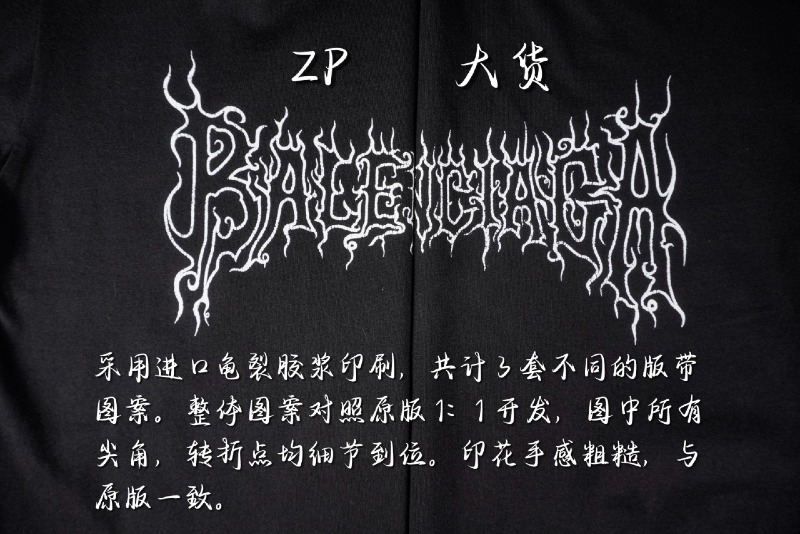 ZP 大货
BALENCIAGA
采用进口龟裂胶浆印刷，共计3套不同的版带
图案。整体图案对照原版1：1开发，图中所有
尖角，转折点均细节到位。印花手感粗糙，与
原版一致。